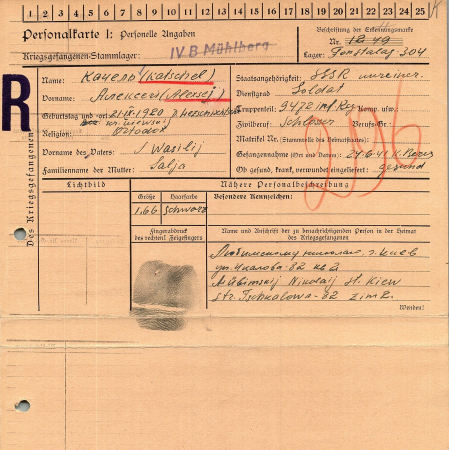 Personalkarte I: Personelle Angaben
Beschriftung der Erkennungsmarke
Kriegsgefangenen-Stammlager: IV B Mühlberg
Nr. 1849
Lager: Fonstalag 304
R
Des Kriegsgefangenen
Name: (Katschel)
Vorname: Алексей (Alersej)
Geburtstag und -ort: 21.IX.1920
Religion: Ortodox
Vorname des Vaters: Wasilij
Familienname der Mutter: Salja
Staatsangehörigkeit: SSSR
Dienstgrad: Soldat
Truppenteil: 9472 inf Reg Komp. usw.:
Zivilberuf: Schlosser Berufs-Gr.:
Matrikel Nr. (Stammrolle des Heimatstaates):
Gefangennahme (Ort und Datum): 24.6.41
Ob gesund, krank, verwundet eingeliefert: gesund
Lichtbild
Nähere Personalbeschreibung
Größe
Haarfarbe
Besondere Kennzeichen:
1.66
schwarz
Fingerabdruck
des rechten Zeigefingers
Name und Anschrift der zu benachrichtigenden Person in der Heimat
des Kriegsgefangenen
г. Киев
ул. Чкалова 82 кв 2
Nikolaij st. Kiew
str. Tschkalowa 82 zim 2.
Wenden!